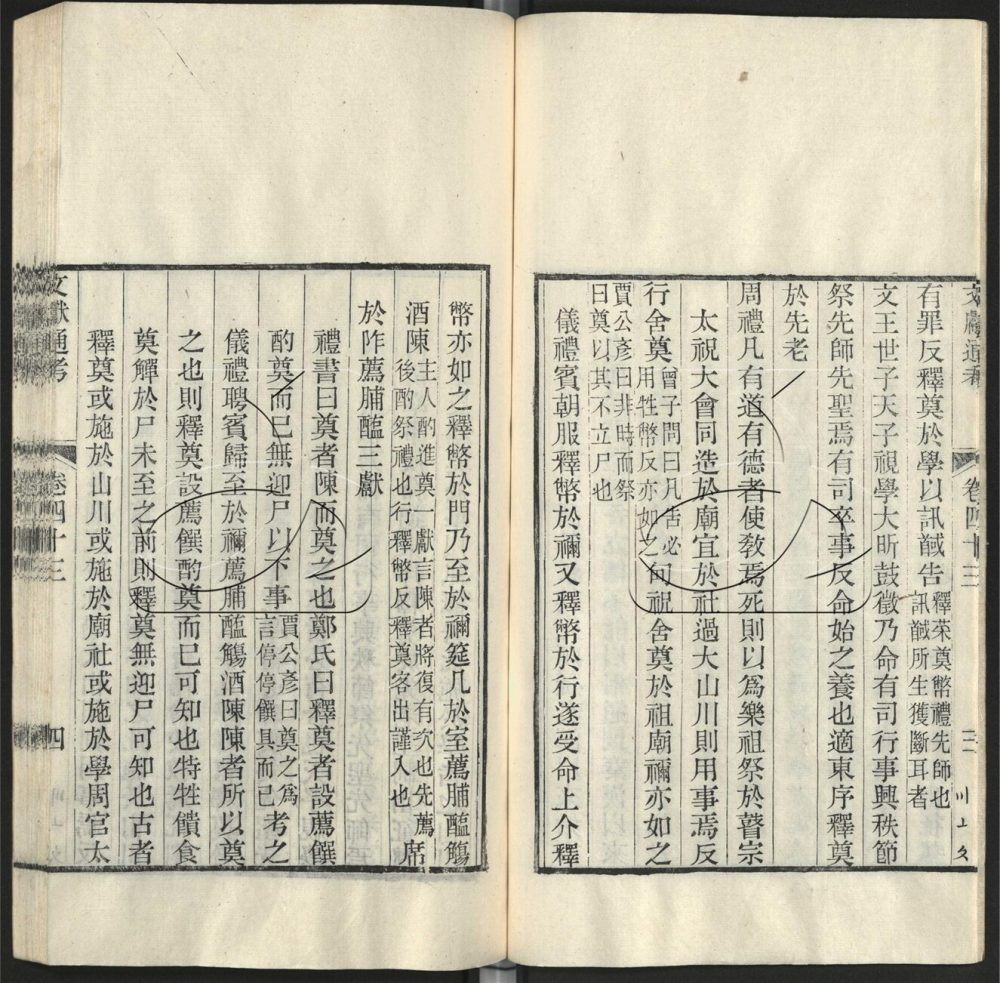 文獻通考 卷四十三 三
有罪反釋奠於學以訊馘告釋菜奠幣禮先師也訊馘所生獲斷耳者
文王世子天子視學大昕鼓徵乃命有司行事興秩節
祭先師先聖焉有司卒事反命始之養也適東序釋奠
於先老
周禮凡有道有德者使教焉死則以爲樂祖祭於瞽宗
太祝大會同造於廟宜於社過大山川則用事焉反
行舍奠曾子問曰凡告必用牲幣反亦如之甸祝舍奠於祖廟禰亦如之
賈公彥曰非時而祭曰奠以其不立尸也
儀禮賓朝服釋幣於禰又釋幣於行遂受命上介釋
幣亦如之釋幣於門乃至於禰筵几於室薦脯醢觴
酒陳主人酌進奠一獻言陳者將復有次也先薦後酌祭禮也行釋幣反釋奠客出謹入也席
於阼薦脯醢三獻
禮書曰奠者陳而奠之也鄭氏曰釋奠者設薦饌
酌奠而已無迎尸以下事賈公彥曰奠之爲言停停饌具而已考之
儀禮聘賓歸至於禰薦脯醢觴酒陳陳者所以奠
之也則釋奠設薦饌酌奠而已可知也特牲饋食
奠觶於尸未至之前則釋奠無迎尸可知也古者
釋奠或施於山川或施於廟社或施於學周官太
文獻通考 卷四十三 四